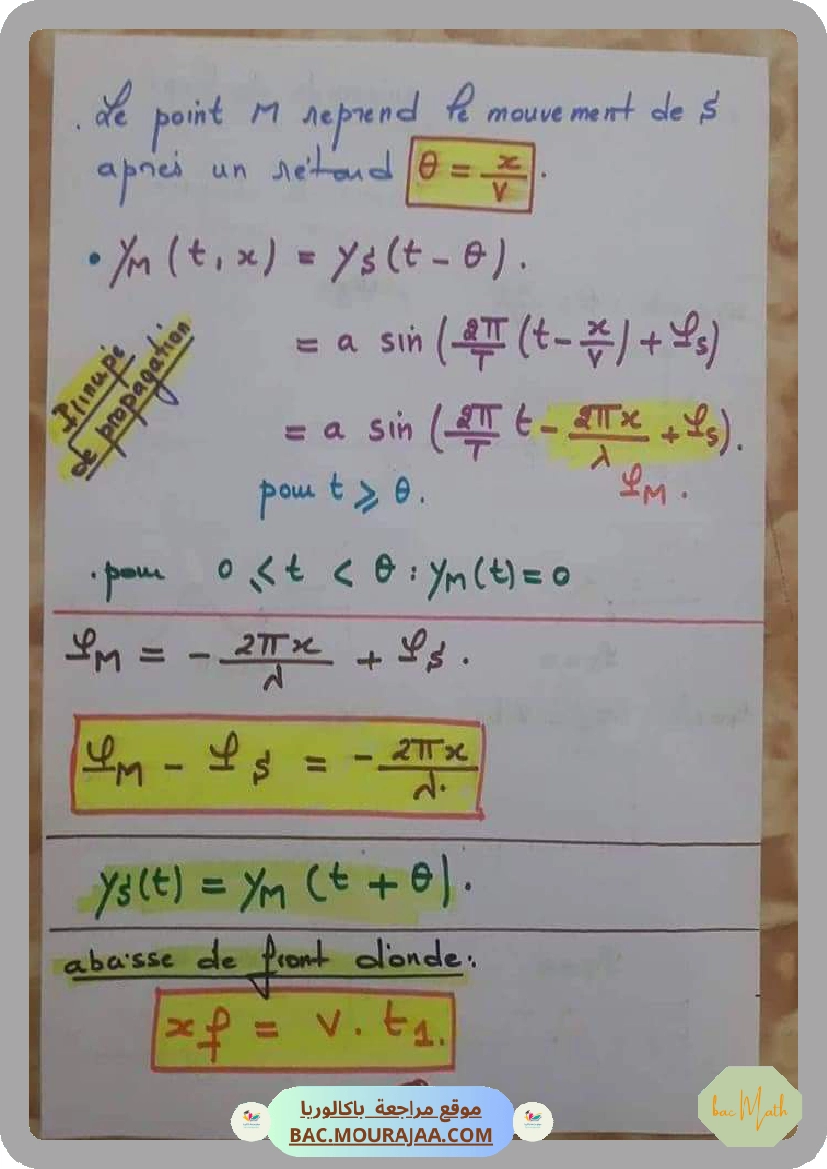 . Le point M reprend le mouvement de S
après un rétard θ = x/v .
• yM (t, x) = yS (t - θ).
= a sin (2π/T (t - x/v) + φS)
Principe
de propagation
= a sin (2π/T t - 2πx/λ + φS).
pour t ⩾ θ.
φM .
. pour 0 ⩽ t < θ : yM (t) = 0
φM = - 2πx/λ + φS .
φM - φS = - 2πx/λ.
yS(t) = yM (t + θ).
abaisse de front d'onde :
xf = v . t1.
موقع مراجعة باكالوريا
BAC.MOURAJAA.COM
bac Math